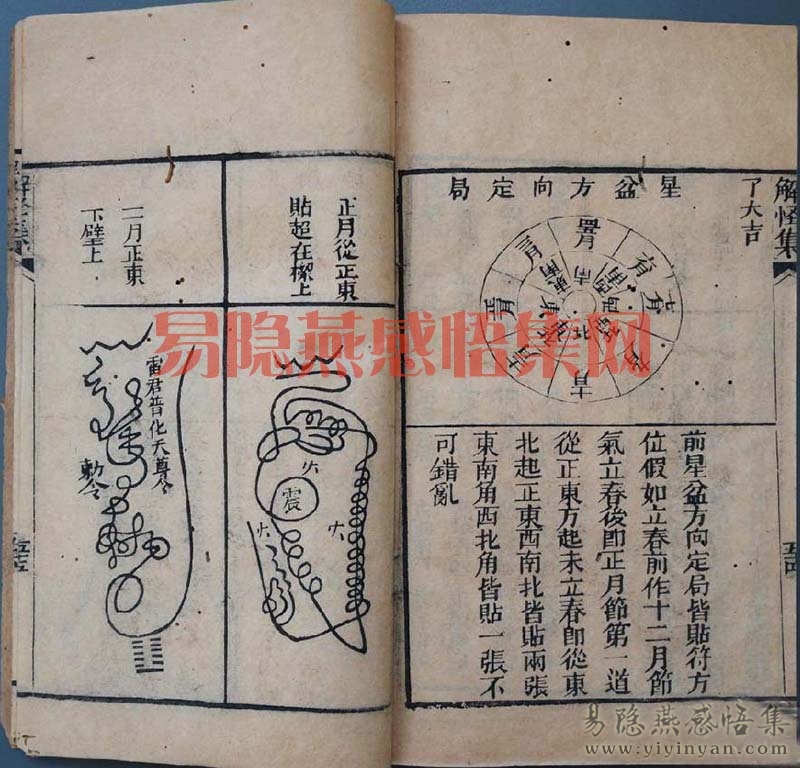 解怪集
了大吉
星盆方向定局
南
東南
前星盆方向定局皆貼符方
位假如立春前作十二月節
氣立春後即正月節第一道
從正東方起未立春即從東
北起正東西南北皆貼兩張
東南角西北角皆貼一張不
可錯亂
正月從正東
貼超在樑上
震
火
火
火
二月正東
下壁上
雷君普化天尊令
勅令
易隐燕感悟集网
易隐燕感悟集
www.yiyinyan.com